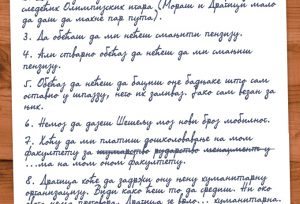 следећих Олимпијских игара (Мораш и Драгици мало
да даш да макне пар пута).
3. Да обећаш да ми нећеш смањити пензију.
4. Али стварно обећај да нећеш да ми смањиш
пензију.
5. Обећај да нећеш да бациш оне бадњаке што сам
оставио у шпајзу, него их заливај. Јако сам везан за
њих.
6. Немој да дајеш Шешељу мој нови број мобилног.
7. Хоћу да ми платиш дошколовавање на мом
факултету за шумарство рударство менаџмент у
...ма на мом оном факултету.
8. Драгица хоће да задржи ону њену хуманитарну
организацију. Види како ћеш то да средиш. Ни око